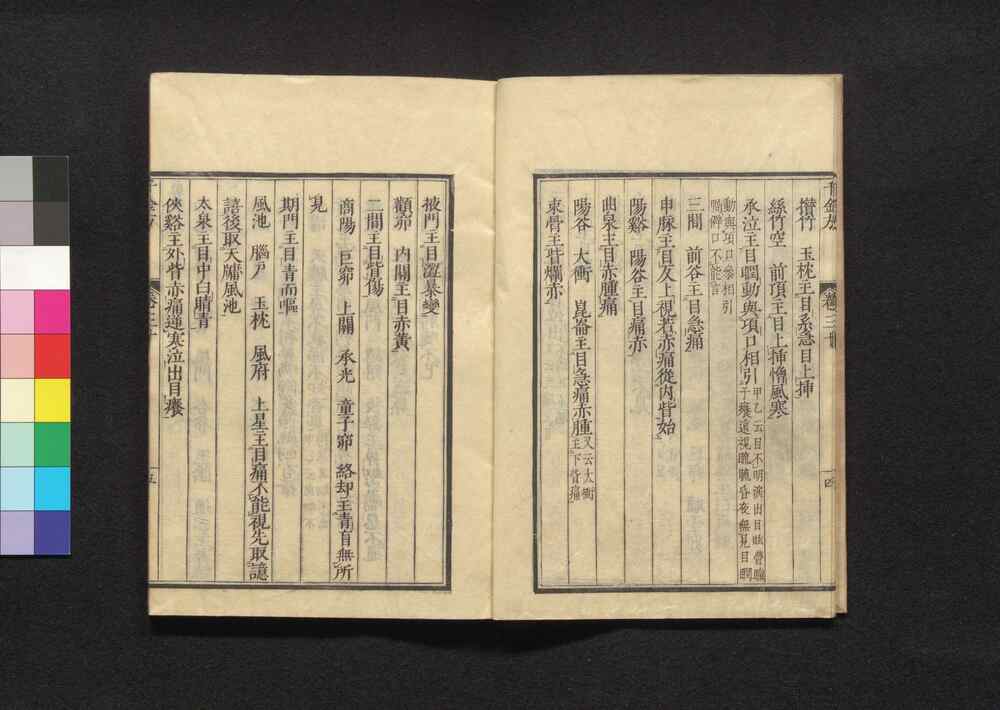 攢竹　玉枕主目系急目上挿
絲竹空　前頂主目上挿憎風寒
承泣主目瞤動與項口相引甲乙云目不明淚出目眩瞢瞳子癢遠視𥇀𥇀昏夜無見目瞤
動與項口參相引喎僻口不能言
三間　前谷主目急痛
申脉主目反上視若赤痛從內眥始
陽谿　陽谷主目痛赤
曲泉主目赤腫痛
陽谷　大衝　崑崙主目急痛赤腫又云太衝主下眥痛
束骨主眥爛赤
掖門主目澀暴變
顴窌　內關主目赤黃
二間主目眥傷
商陽　巨窌　上關　承光　童子窌　絡却主青盲無所
見
期門主目青而嘔
風池　腦戸　玉枕　風府　上星主目痛不能視先取譩
譆後取天牖風池
太泉主目中白睛青
俠谿主外眥赤痛逆寒泣出目癢